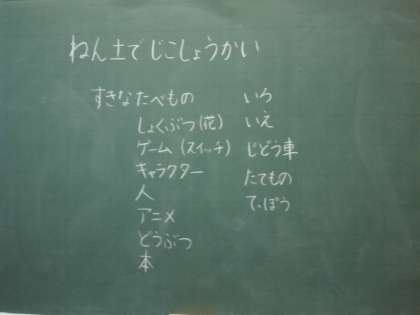 ねん土でじこしょうかい
すきなたべもの
しょくぶつ(花)
ゲーム(スイッチ)
キャラクター
人
アニメ
どうぶつ
本
いろ
いえ
じどう車
たてもの
てっぽう